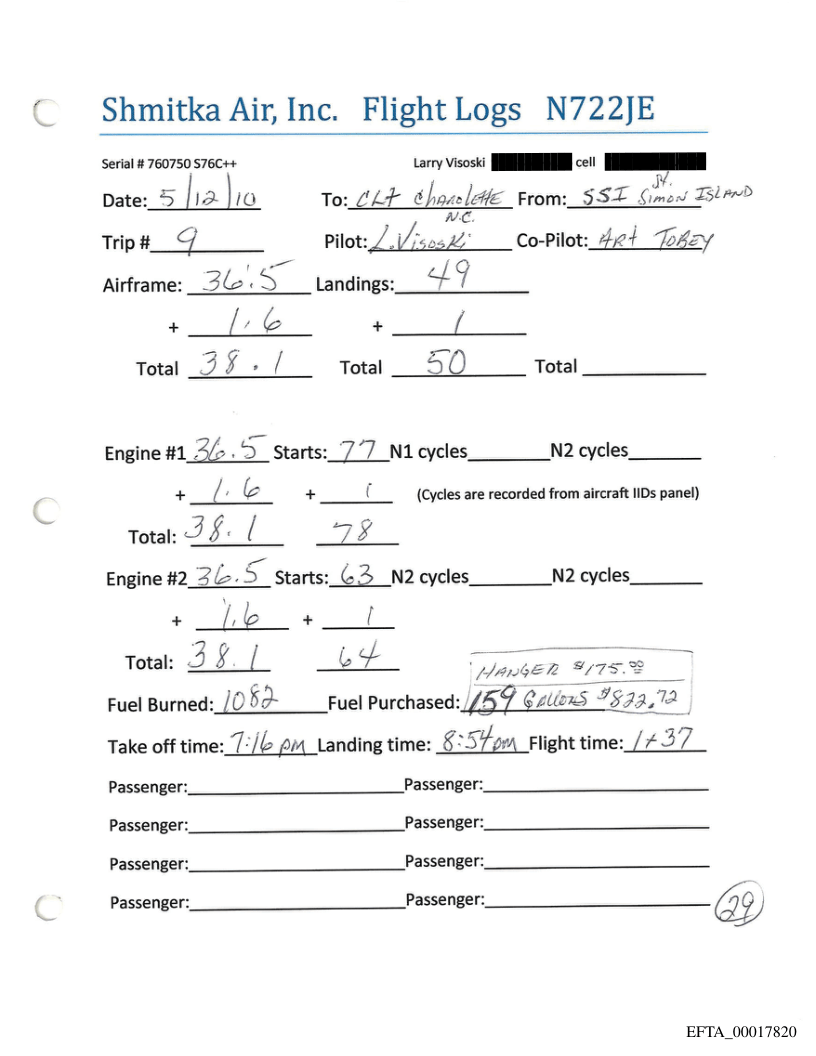 Shmitka Air, Inc. Flight Logs N722JE
Serial # 760750 S76C++ Larry Visoski cell
Date: 5/12/10 To: CLT CharoLETTE N.C. From: SSI St. Simon ISLAND
Trip # 9 Pilot: L. Visoski Co-Pilot: ART TOBEY
Airframe: 36.5 Landings: 49
+ 1.6 + 1
Total 38.1 Total 50 Total
Engine #1 36.5 Starts: 77 N1 cycles N2 cycles
+ 1.6 + 1 (Cycles are recorded from aircraft IIDs panel)
Total: 38.1 78
Engine #2 36.5 Starts: 63 N2 cycles N2 cycles
+ 1.6 + 1
Total: 38.1 64
HANGER $175.00
Fuel Burned: 1082 Fuel Purchased: 159 GALLONS $822.72
Take off time: 7:16 pm Landing time: 8:54 pm Flight time: 1+37
Passenger: Passenger:
Passenger: Passenger:
Passenger: Passenger:
Passenger: Passenger:
29
EFTA_00017820